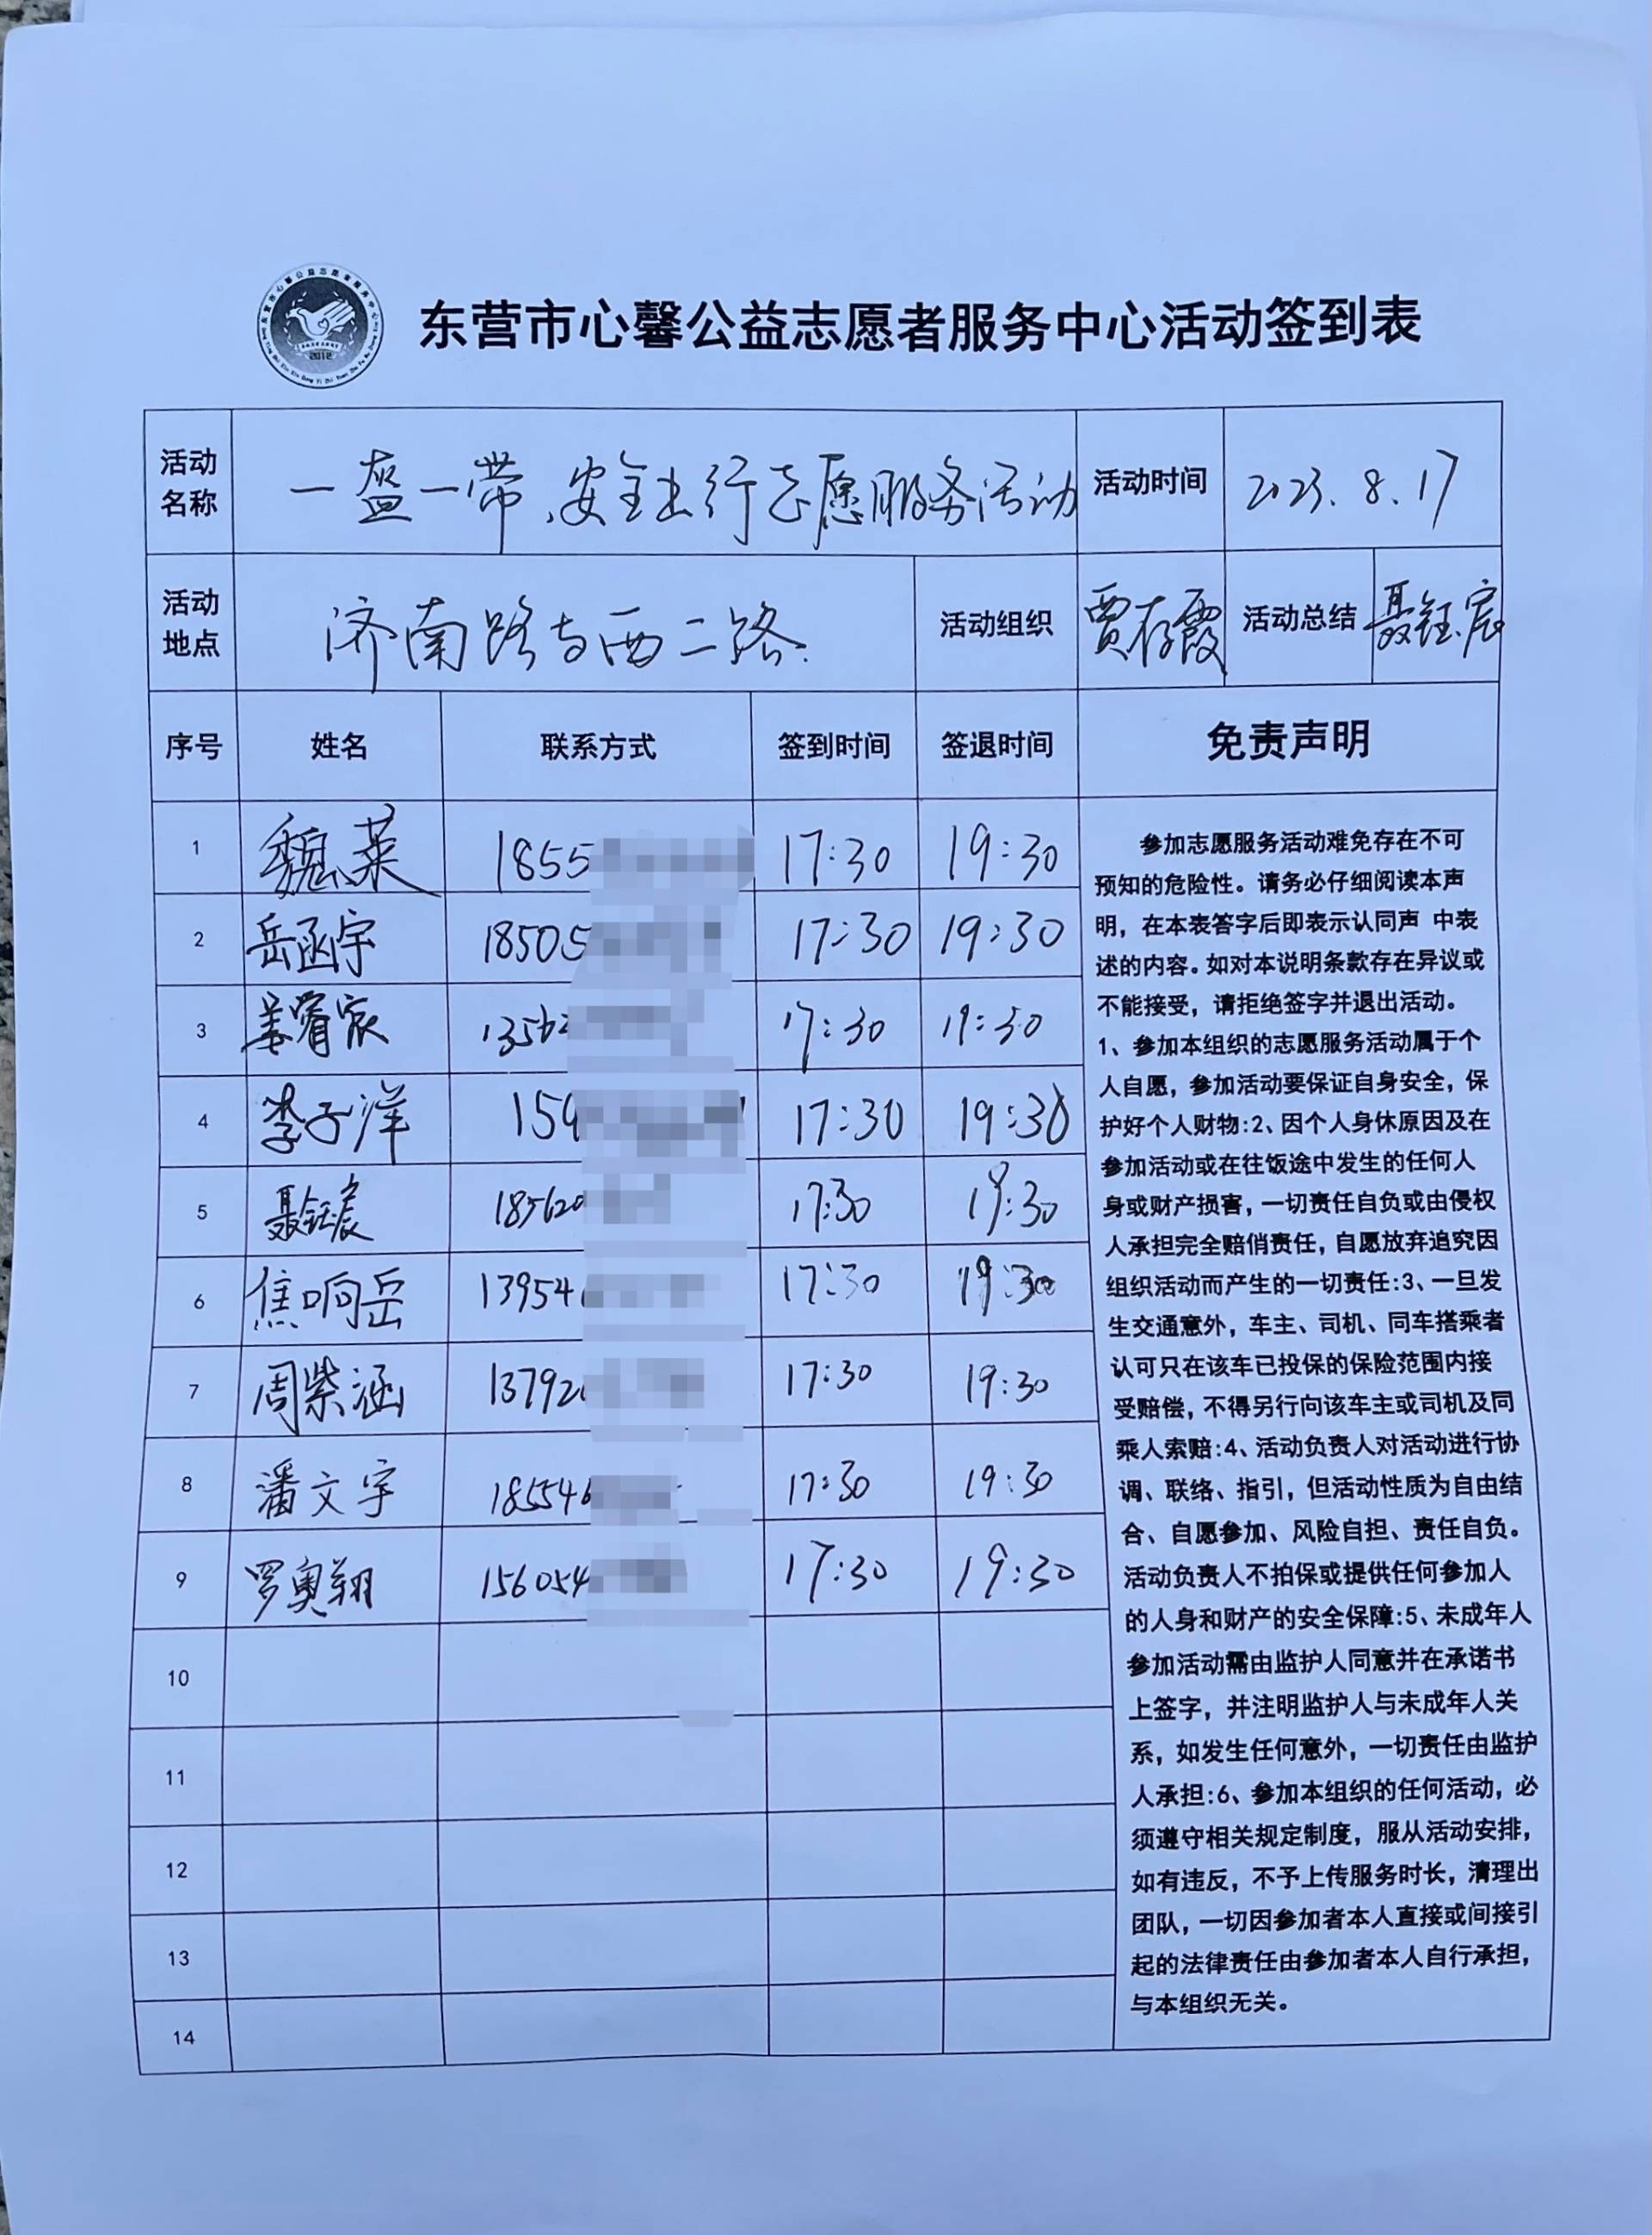 东营市心馨公益志愿者服务中心
2012
东营市心馨公益志愿者服务中心活动签到表
活动名称 一盔一带、安全出行志愿服务活动 活动时间 2023.8.17
活动地点 济南路与西二路. 活动组织 贾存霞 活动总结 聂钰宸
序号 姓名 联系方式 签到时间 签退时间 免责声明
1 魏菜 1855 17:30 19:30
2 岳函宇 18505 17:30 19:30
3 姜睿宸 13562 17:30 19:30
4 李子洋 159 17:30 19:30
5 聂钰宸 18562 17:30 19:30
6 焦响岳 13954 17:30 19:30
7 周紫涵 13792 17:30 19:30
8 潘文宇 18554 17:30 19:30
9 罗奥翔 156054 17:30 19:30
10
11
12
13
14
参加志愿服务活动难免存在不可
预知的危险性。请务必仔细阅读本声
明，在本表答字后即表示认同声 中表
述的内容。如对本说明条款存在异议或
不能接受，请拒绝签字并退出活动。
1、参加本组织的志愿服务活动属于个
人自愿，参加活动要保证自身安全，保
护好个人财物:2、因个人身休原因及在
参加活动或在往饭途中发生的任何人
身或财产损害，一切责任自负或由侵权
人承担完全赔俏责任，自愿放弃追究因
组织活动而产生的一切责任:3、一旦发
生交通意外，车主、司机、同车搭乘者
认可只在该车已投保的保险范围内接
受赔偿，不得另行向该车主或司机及同
乘人索赔:4、活动负责人对活动进行协
调、联络、指引，但活动性质为自由结
合、自愿参加、风险自担、责任自负。
活动负责人不拍保或提供任何参加人
的人身和财产的安全保障:5、未成年人
参加活动需由监护人同意并在承诺书
上签字，并注明监护人与未成年人关
系，如发生任何意外，一切责任由监护
人承担:6、参加本组织的任何活动，必
须遵守相关规定制度，服从活动安排，
如有违反，不予上传服务时长，清理出
团队，一切因参加者本人直接或间接引
起的法律责任由参加者本人自行承担，
与本组织无关。